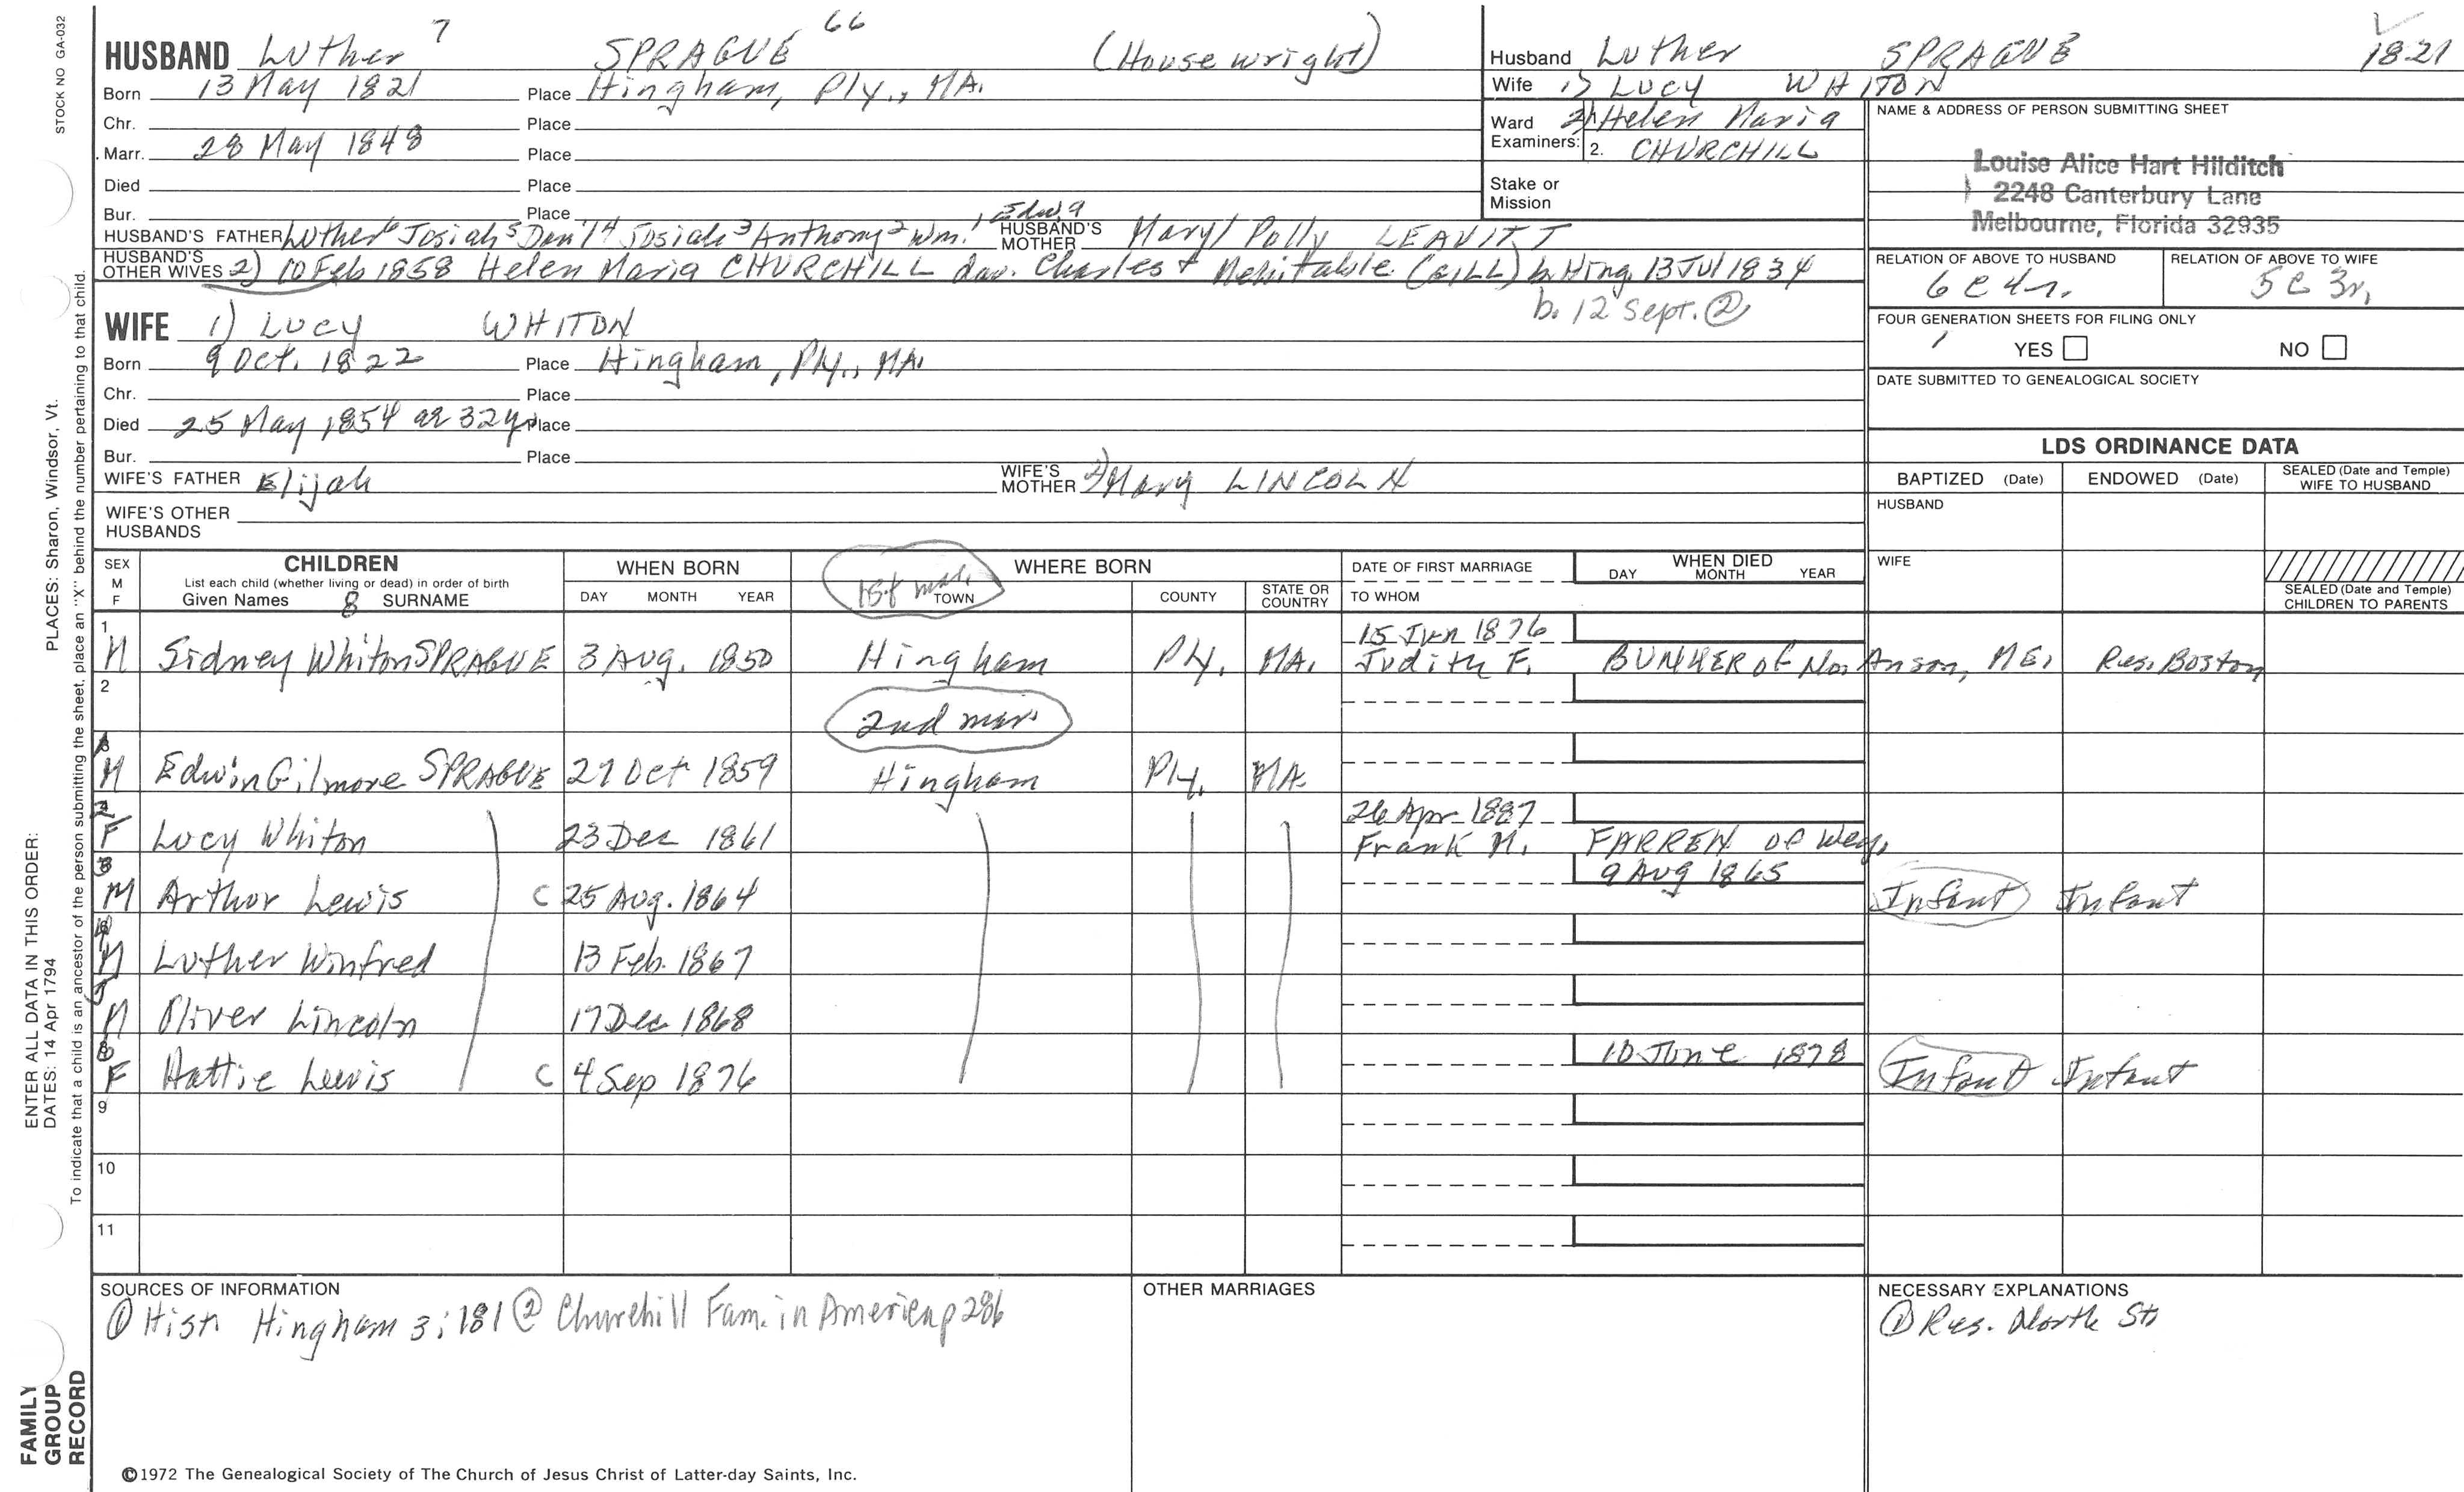 STOCK NO GA-032
HUSBAND Luther 7 SPRAGUE 66 (Housewright)
Born 13 May 1821 Place Hingham, Ply., MA.
Chr. Place
Marr. 28 May 1848 Place
Died Place
Bur. Place
HUSBAND'S FATHER Luther6 Josiah5 Dan'l4 Josiah3 Anthony2 Wm.1 Edw.a HUSBAND'S MOTHER Mary/ Polly LEAVITT
HUSBAND'S OTHER WIVES 2) 10 Feb 1858 Helen Maria CHURCHILL dau. Charles + Mehitable (GILL) b. Hing. 13 Jul 1834
b. 12 Sept. ②
WIFE 1) Lucy WHITON
Born 9 Oct. 1822 Place Hingham, Ply., MA.
Chr. Place
Died 25 May 1854 ae 32 y Place
Bur. Place
WIFE'S FATHER Elijah WIFE'S MOTHER 2) Mary LINCOLN
WIFE'S OTHER HUSBANDS
Husband Luther SPRAGUE 1821
Wife 1) Lucy WHITON
Ward Examiners: 2) Helen Maria
2. CHURCHILL
Stake or Mission
NAME & ADDRESS OF PERSON SUBMITTING SHEET
Louise Alice Hart Hilditch
2248 Canterbury Lane
Melbourne, Florida 32935
RELATION OF ABOVE TO HUSBAND RELATION OF ABOVE TO WIFE
6 C 4 r. 5 C 3 r.
FOUR GENERATION SHEETS FOR FILING ONLY
YES NO
DATE SUBMITTED TO GENEALOGICAL SOCIETY
LDS ORDINANCE DATA
BAPTIZED (Date) ENDOWED (Date) SEALED (Date and Temple) WIFE TO HUSBAND
HUSBAND
WIFE
SEALED (Date and Temple) CHILDREN TO PARENTS
SEX M F CHILDREN WHEN BORN WHERE BORN DATE OF FIRST MARRIAGE WHEN DIED
List each child (whether living or dead) in order of birth
Given Names 8 SURNAME DAY MONTH YEAR 1st mar. TOWN COUNTY STATE OR COUNTRY TO WHOM DAY MONTH YEAR
1 15 Jun 1876
M Sidney Whiton SPRAGUE 3 Aug. 1850 Hingham Ply. MA. Judith F. BUNKER of No. Anson, ME. Res. Boston
2
2nd mar.
M Edwin Gilmore SPRAGUE 27 Oct 1859 Hingham Ply. MA.
2 26 Apr 1887
F Lucy Whiton 23 Dec 1861 Frank M. FARREN of Wey.
3 9 Aug 1865
M Arthur Lewis C 25 Aug. 1864 Infant Infant
M Luther Winfred 13 Feb. 1867
5
M Oliver Lincoln 17 Dec 1868
10 June 1878
F Hattie Lewis C 4 Sep 1876 Infant Infant
9
10
11
SOURCES OF INFORMATION
① Hist. Hingham 3:181 ② Churchill Fam. in America p 286
OTHER MARRIAGES
NECESSARY EXPLANATIONS
① Res. North St.
©1972 The Genealogical Society of The Church of Jesus Christ of Latter-day Saints, Inc.
FAMILY GROUP RECORD
ENTER ALL DATA IN THIS ORDER:
DATES: 14 Apr 1794
PLACES: Sharon, Windsor, Vt.
To indicate that a child is an ancestor of the person submitting the sheet, place an "X" behind the number pertaining to that child.